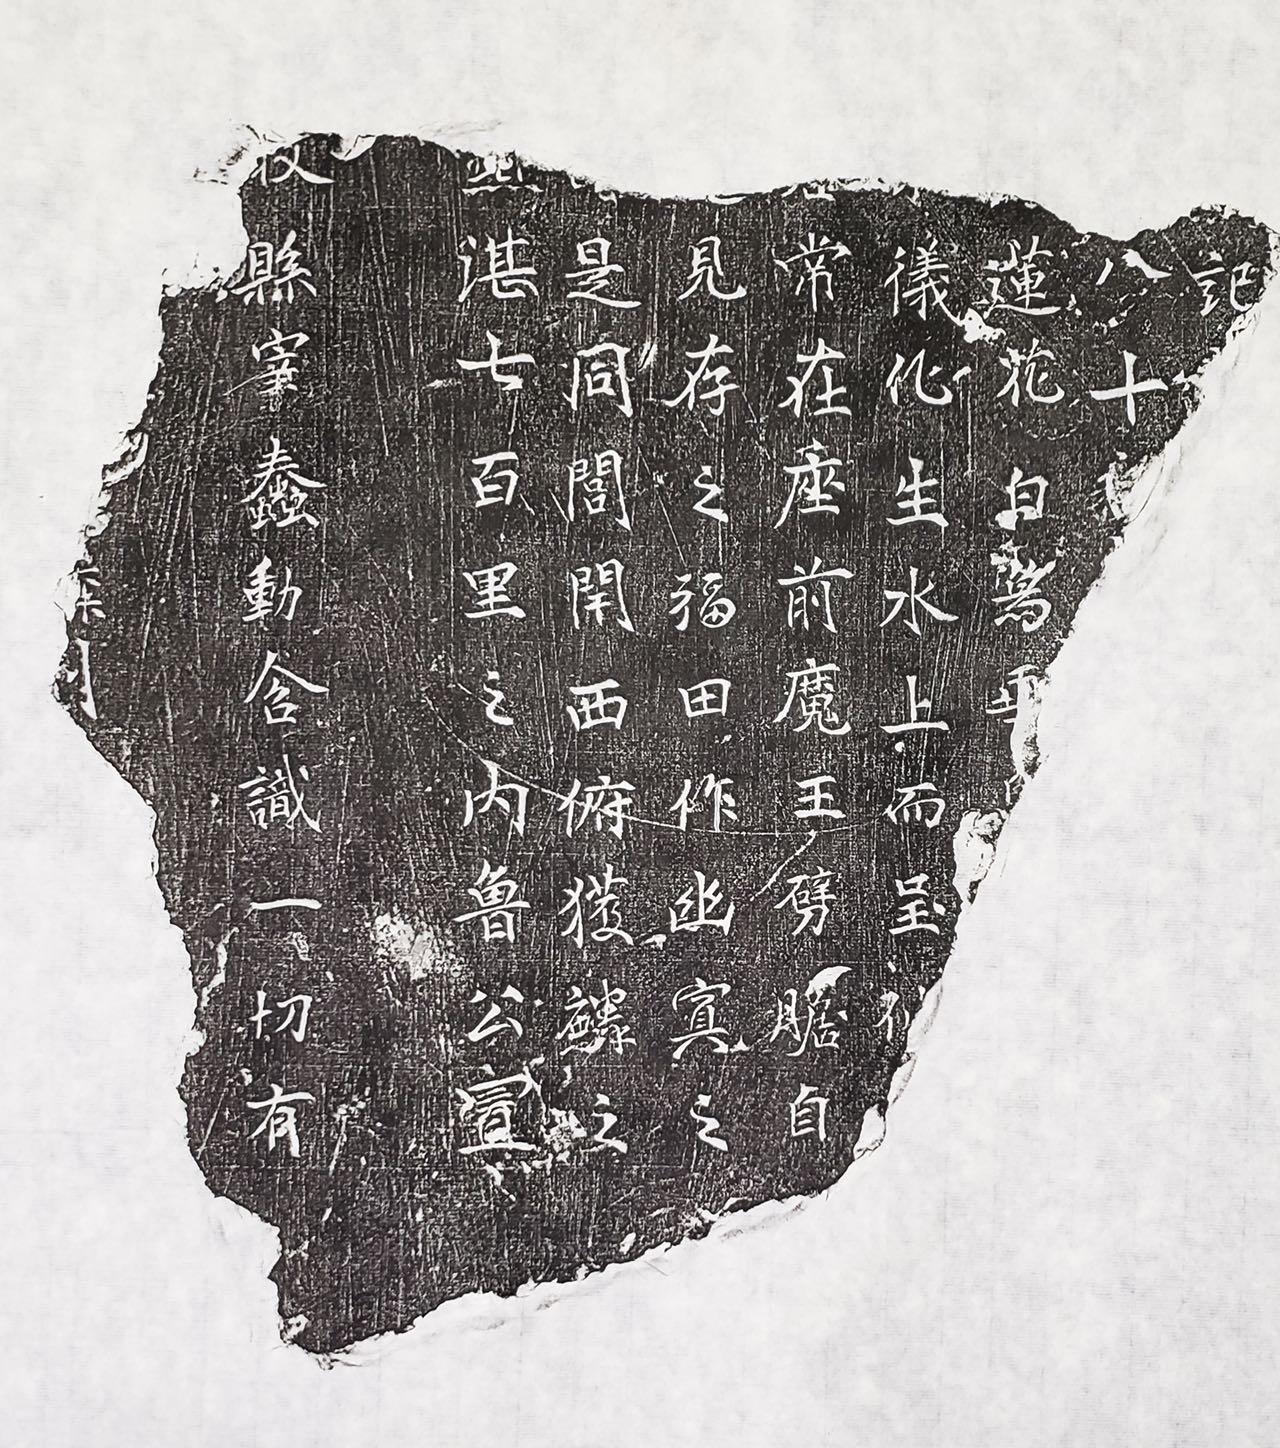 記
八十
蓮花白鳥
儀化生水上而呈
常在座前魔王劈膽自
見存之福田作幽冥之
是同閻閈西俯獲麟之
湛七百里之内魯公宣
牧縣宰蠢動含識一切有